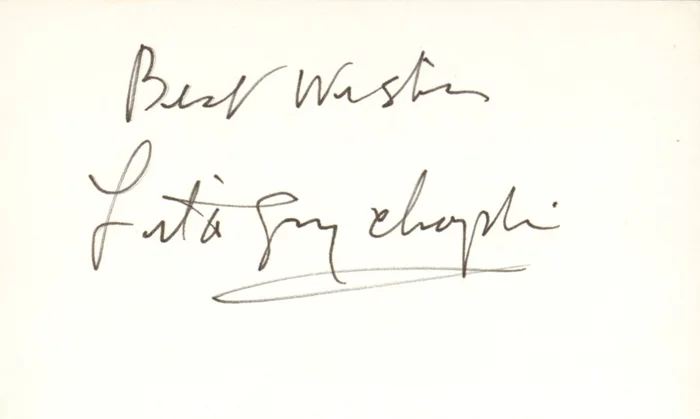 Best Wishes
Lita Grey Chaplin